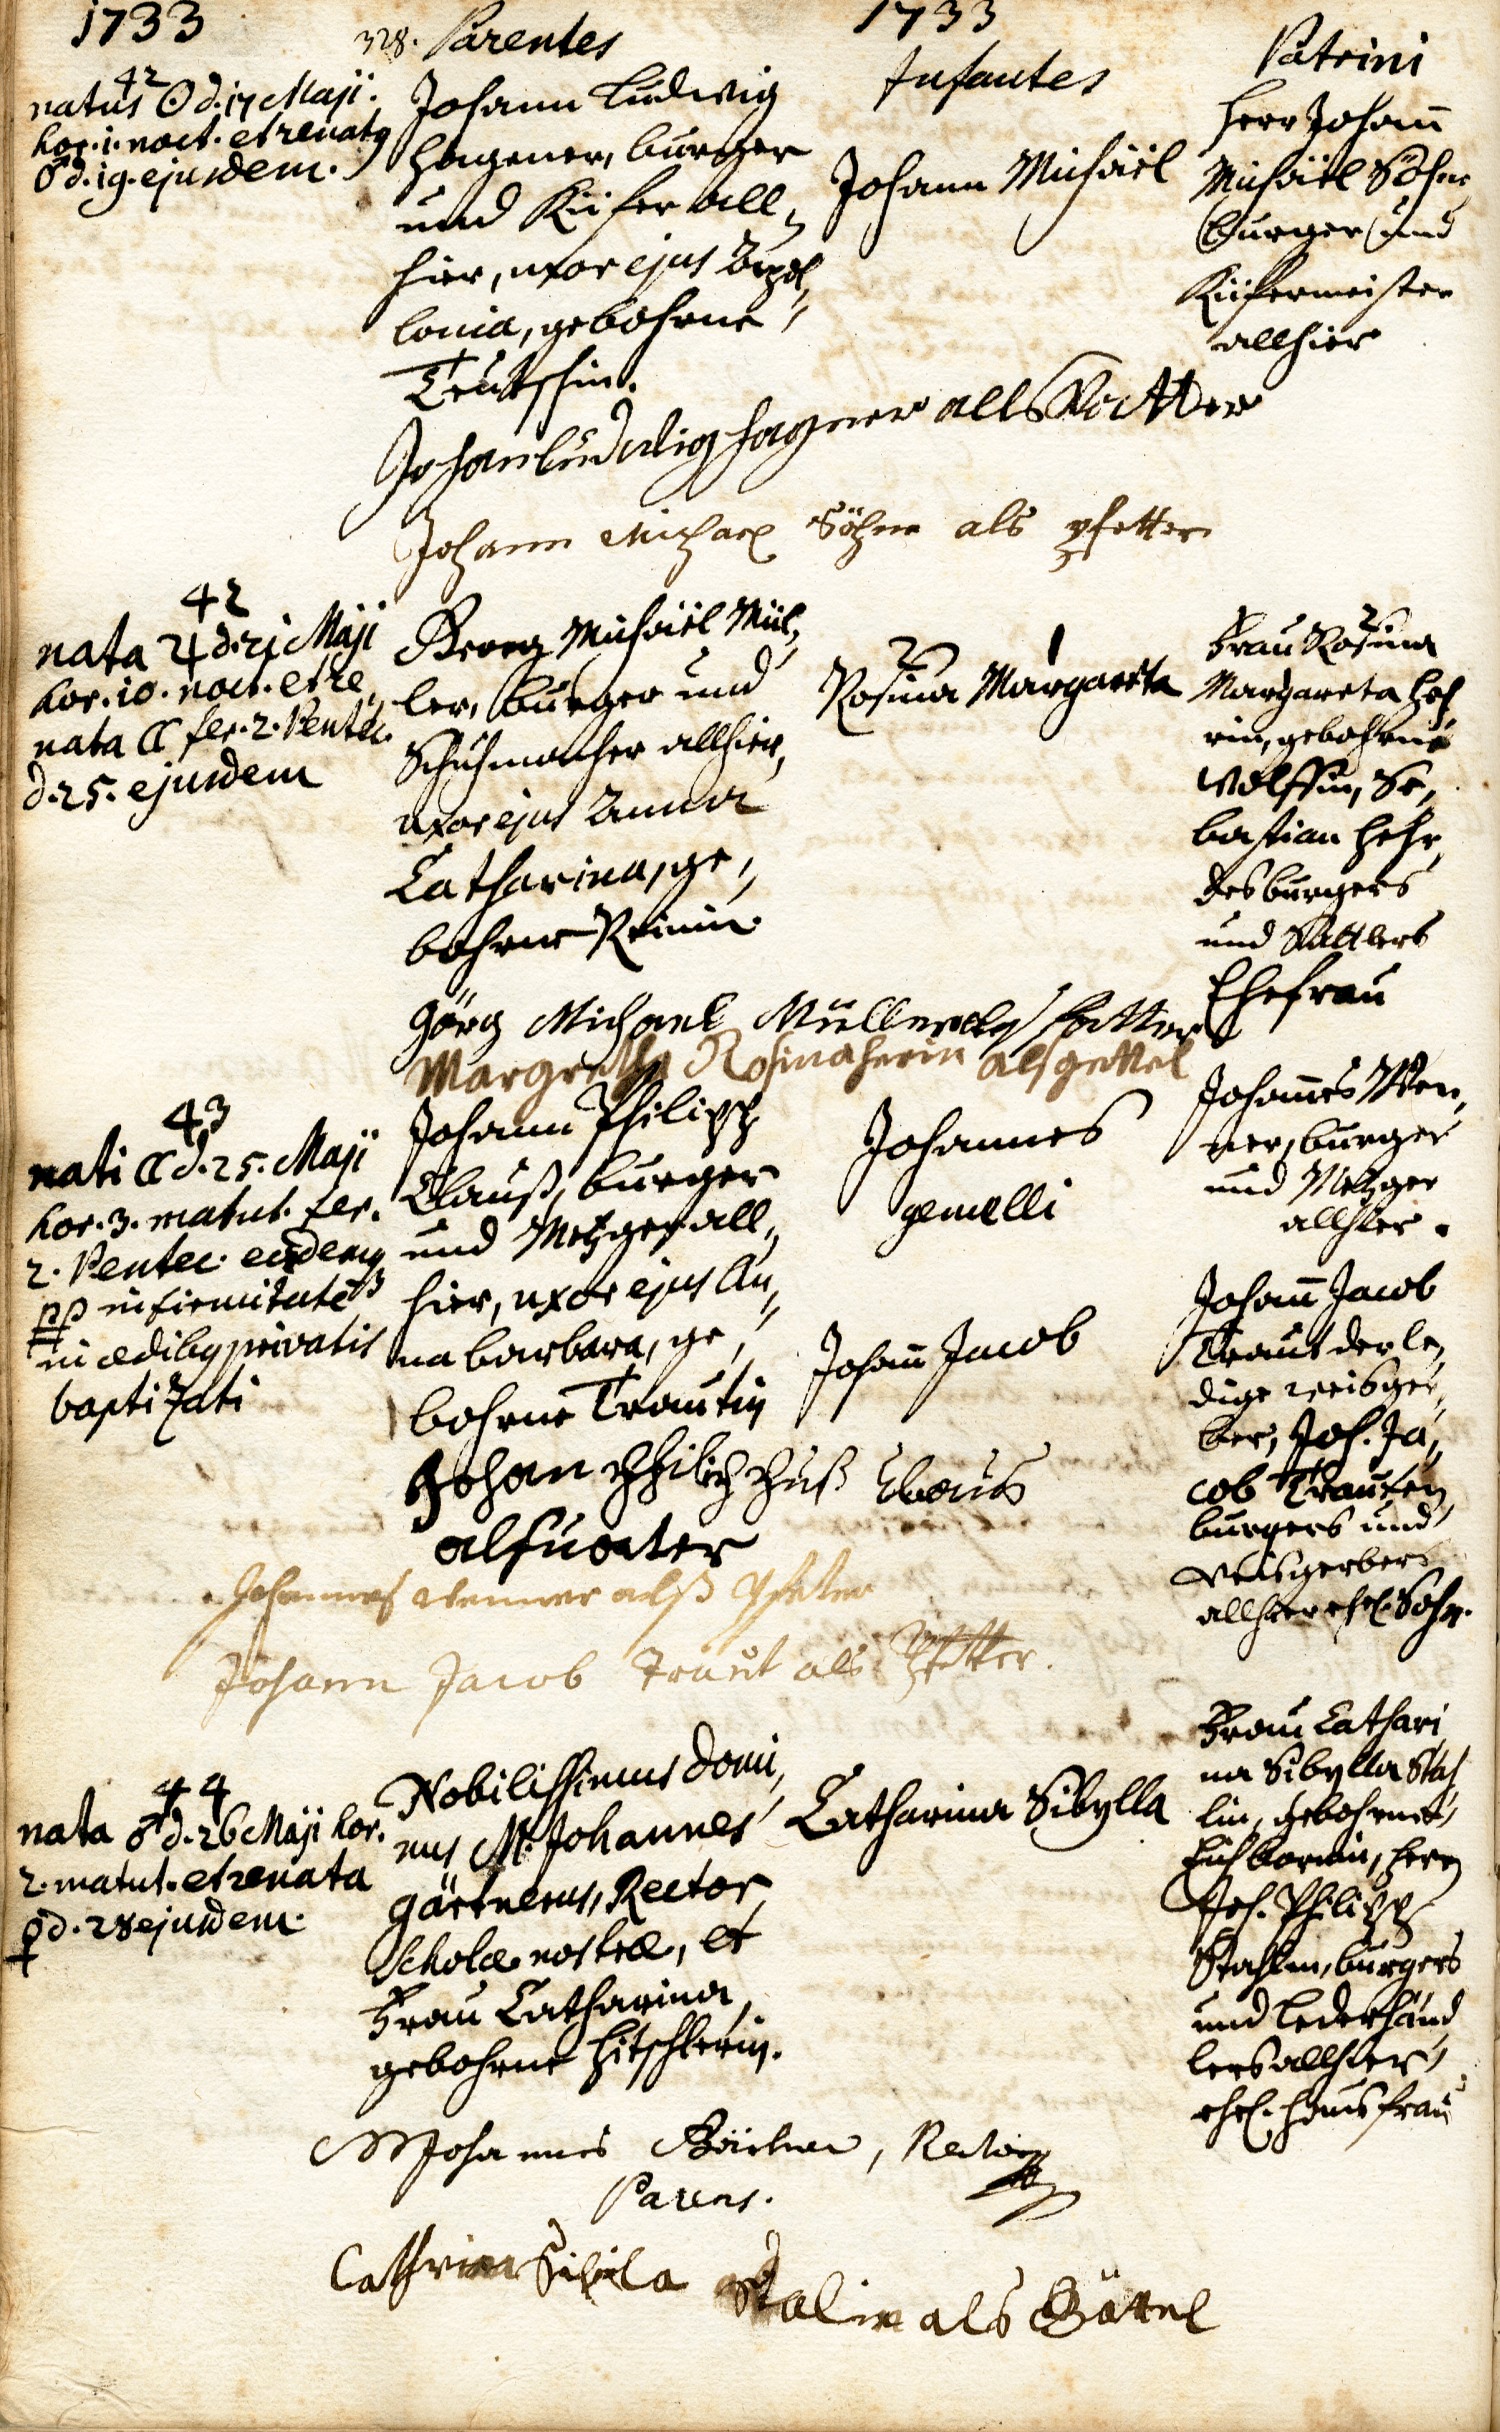 1733
328. Parentes
1733
Infantes
Patrini
42
natus ☉ d. 17 Maji.
hor. 1. noct. et renatq
♂ d. 19. ejusdem.
Johann Ludwig
Hagener, burger
und Küfer all,,
hier, uxor ejus Appol,,
lonia, gebohrne
Teutschin.
Johann Michaël
Herr Johañ
Michaël Böhm
burger und
Küfermeister
allhier
Johan Ludwig Hagner alls Vatter
Johann Michael Böhm als pfetter
42
nata ♃ d. 21 Maji
hor. 10. noct. et re,,
nata ☾ fer. 2. Pentec.
d. 25. ejusdem
Georg Michaël Mül,,
ler, burger und
Schuhmacher allhier,
uxor ejus Anna
Catharina, ge,,
bohrne
2 1
Rosina Margareta
2
Frau Rosina
Margareta
rin, gebohrne
Wolffin, Se,,
bastian
des burgers
und Sattlers
Ehefrau
Görg Michael Müller als fatter
Margreta Rosina herin als gettel
43
nati ☾ d. 25. Maji
hor. 3. matut. fer.
2. Pentec. eodemq
pp infirmitatẽ
in ædibq privatis
baptizati
Johann Philipp
Clauß, burger
und Metzger all,,
hier, uxor ejus An,,
na barbara, ge,,
bohrne Trautin
Johannes
gemelli
Johañ Jacob
Johañes Wen,,
ner, burger
und Metzger
allhier.
Johañ Jacob
Traut der le,,
dige weisger,,
ber, Joh. Ja,,
cob Trauten
burgers und
Weisgerbers
allhier ehel. Sohn.
Johan Clauß
als vatter
Johannes Wenner alß Pfetter
Johann Jacob Traut als Pfetter.
44
nata ♂ d. 26 Maji hor.
2. matut. et renata
♀ d. 28 ejusdem.
Nobilissimus Domi,,
nus M. Johannes
Gärtnerus, Rector
Scholæ nostræ, et
Frau Catharina,
gebohrne Hitschlerin.
Catharina Sibylla
Frau Cathari,,
na Sibylla Stah,,
lin, gebohrne
Eichkornin, Herrn
Joh. Philipp
Stahlen, burgers
und Lederhänd,,
lers allhier
ehel. Hausfrau
M Johannes Gärtner, Rector
Parens.
Cathrina Sibila Stalin als Göttel